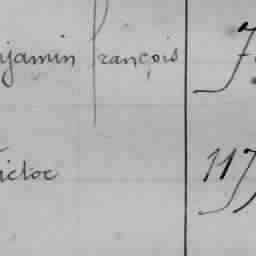 njamin François 7
ictor 117